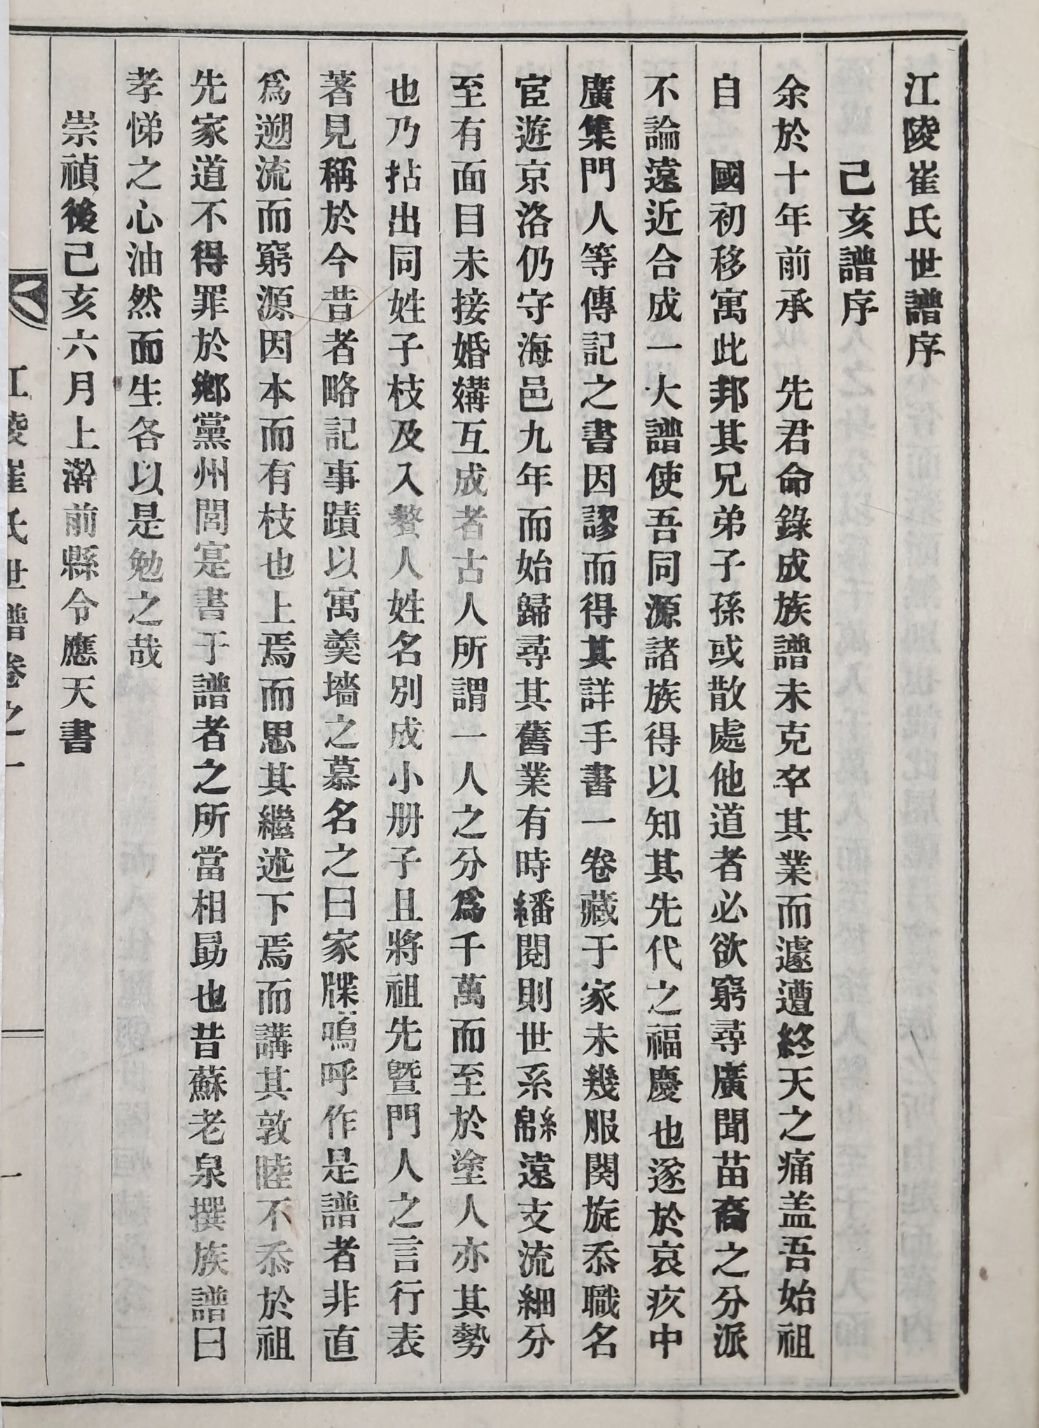 江陵崔氏世譜序
己亥譜序
余於十年前承 先君命錄成族譜未克卒其業而遽遭終天之痛盖吾始祖
自 國初移寓此邦其兄弟子孫或散處他道者必欲窮尋廣聞苗裔之分派
不論遠近合成一大譜使吾同源諸族得以知其先代之福慶也遂於哀疚中
廣集門人等傳記之書因謬而得其詳手書一卷藏于家未幾服闋旋忝職名
宦遊京洛仍守海邑九年而始歸尋其舊業有時繙閱則世系緜遠支流細分
至有面目未接婚媾互成者古人所謂一人之分爲千萬而至於塗人亦其勢
也乃拈出同姓子枝及入贅人姓名別成小册子且將祖先曁門人之言行表
著見稱於今昔者略記事蹟以寓羹墻之慕名之曰家牒嗚呼作是譜者非直
爲遡流而窮源因本而有枝也上焉而思其繼述下焉而講其敦睦不忝於祖
先家道不得罪於鄕黨州閭寔書于譜者之所當相勗也昔蘇老泉撰族譜曰
孝悌之心油然而生各以是勉之哉
崇禎後己亥六月上澣前縣令應天書
江陵崔氏世譜卷之一
一